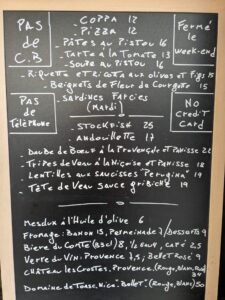 PAS
de
C.B
COPPA 12
PIZZA 12
PÂTES AU PISTOU 16
TARTE À LA TOMATE 13
SOUPE AU PISTOU 16
FERMÉ
le
week-end
- RIQUETTE ET RICOTA AUX OLIVES ET FIGS 15
- BEIGNETS DE FLEUR DE COURGETTE 15
PAS
de
TÉLÉPHONE
- SARDINES FARCIES
(MARDI)
STOCKFISH 25
ANDOUILLETTE 17
NO
CREDIT
CARD
- DAUBE DE BŒUF À LA PROVENÇALE ET PANISSE 22
- TRIPES DE VEAU À LA NIÇOISE ET PANISSE 18
- LENTILLES AUX SAUCISSES "PERUGINA" 19
- TÊTE DE VEAU SAUCE GRIBICHE 19
MESDUN À L'HUILE D'OLIVE 6
FROMAGE: BANON 13, / DESSERTS 9
BIÈRE DU COMTÉ (33Cl) 8, 1/2 EAU, CAFÉ 2,5
VERRE DU VIN: PROVENCE 7,5, BELLET ROSÉ 9
CHÂTEAU LES CROSTES. PROVENCE. (ROUGE, BLANC, ROSÉ) 34
DOMAINE DE TOASC. NICE. BELLET. (ROUGE, BLANC) 50